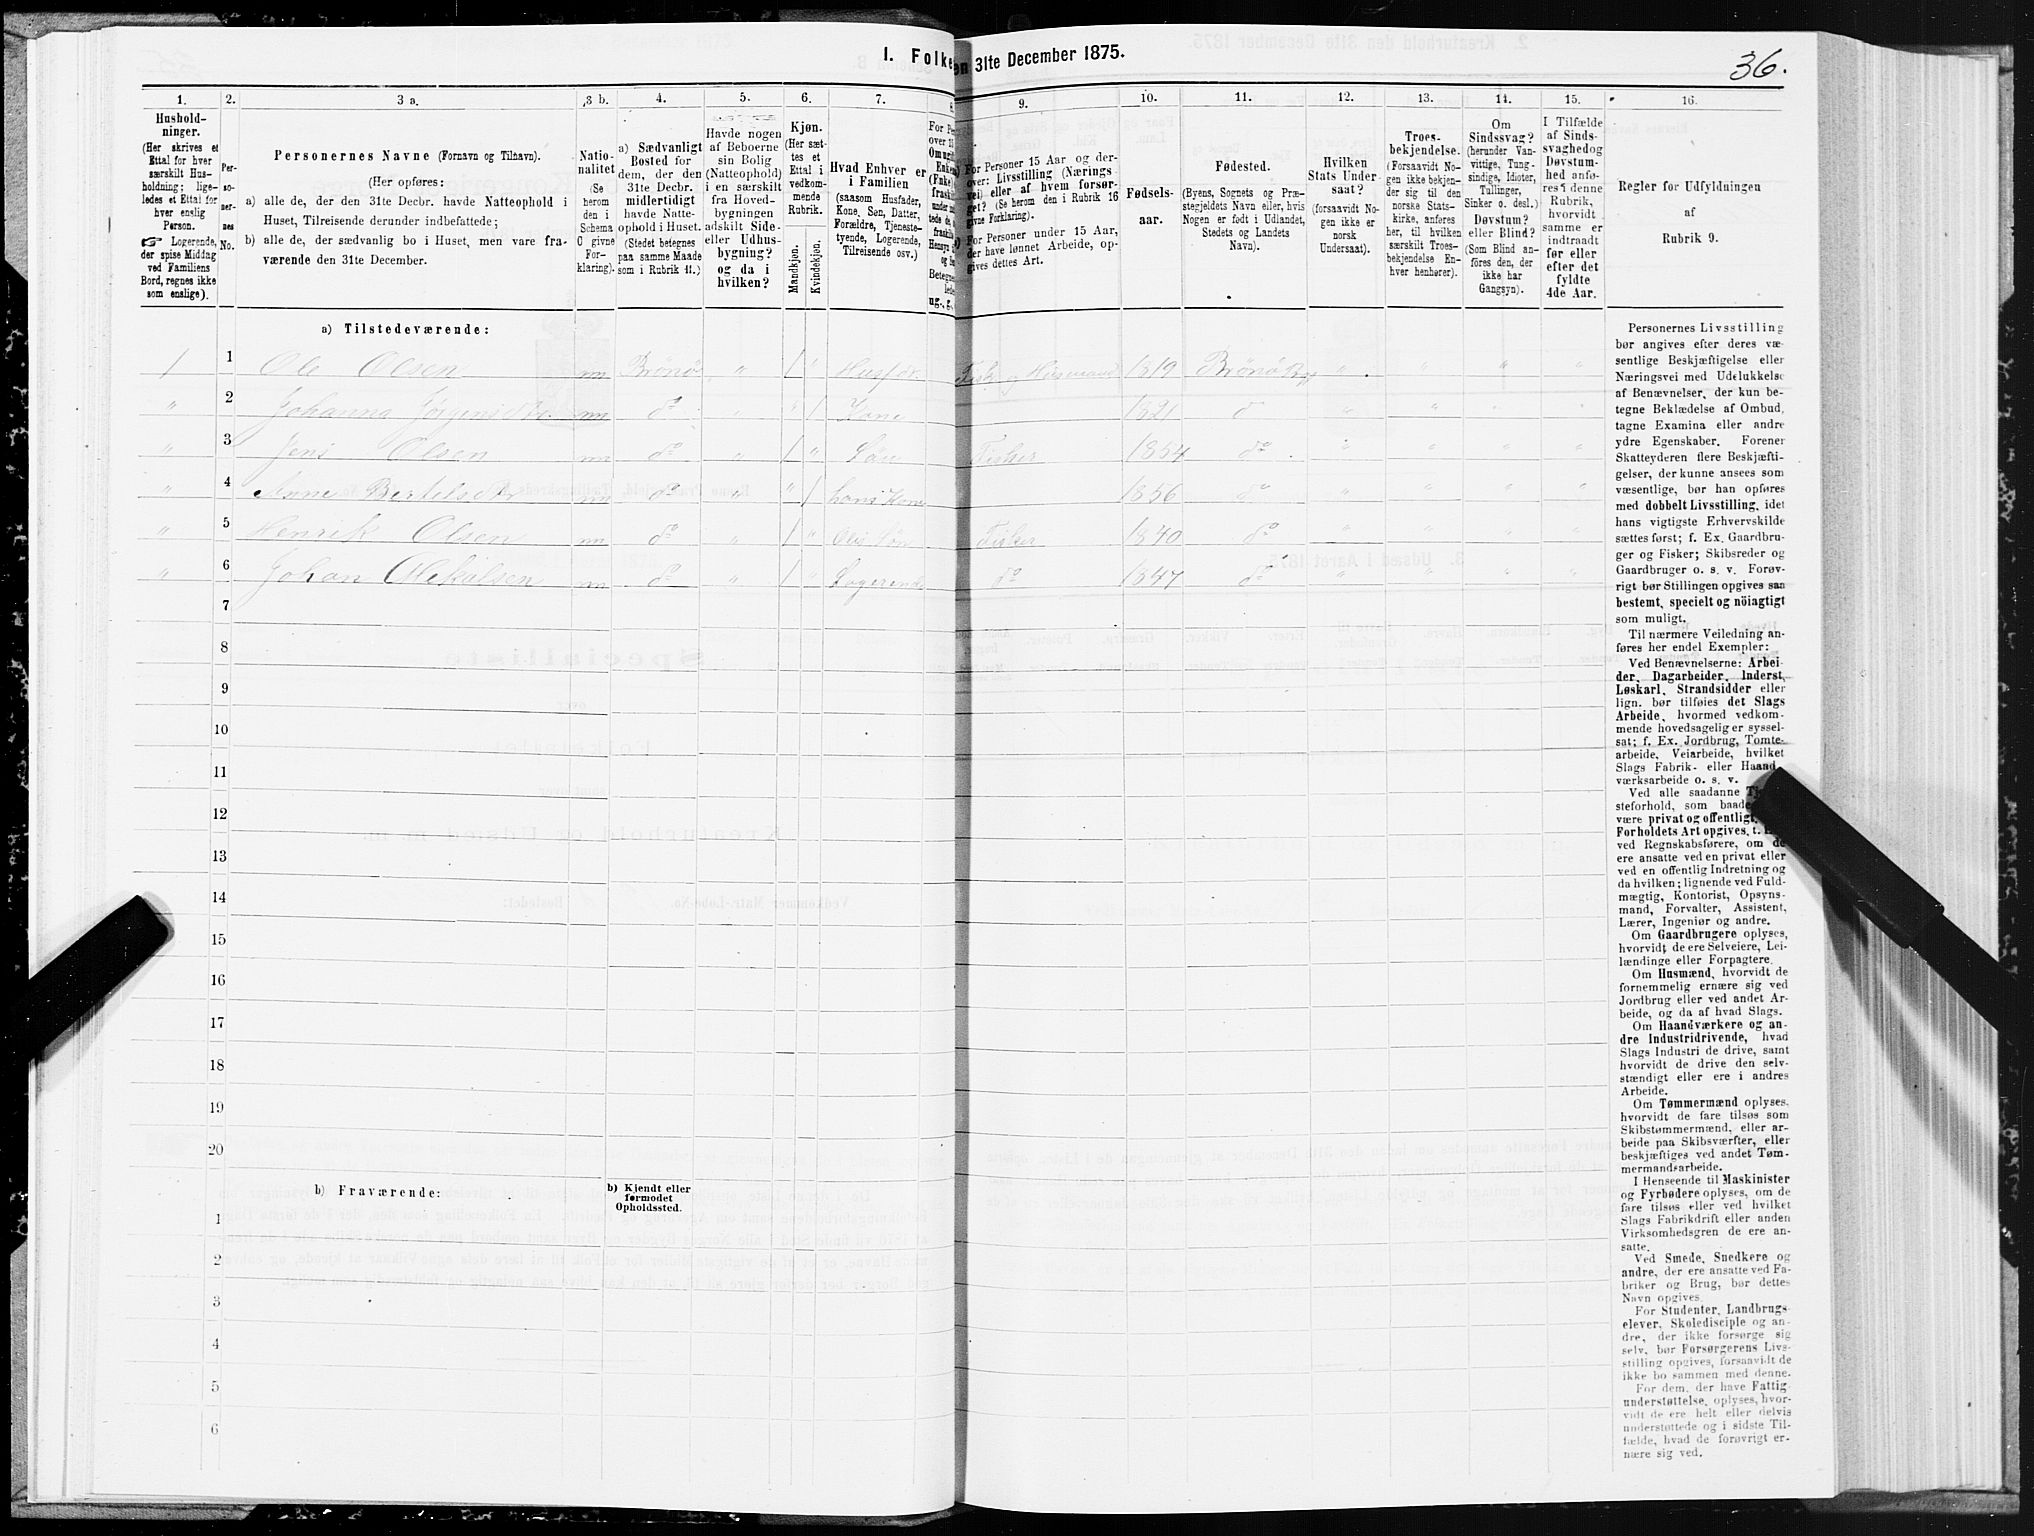 I. Folke en 31te December 1875.
36.
1.
2.
3 a.
3 b.
4.
5.
6.
7.
8.
9.
10.
11.
12.
13.
14.
15.
16.
Hushold-
ninger.
(Her skrives et
Ettal for hver
særskilt Hus-
holdning; lige-
ledes et Ettal for
hver enslig
Person.
☞ Logerende,
der spise Middag
ved Familiens
Bord, regnes ikke
som enslige).
Per-
so-
ner-
nes
No.
Personernes Navne (Fornavn og Tilnavn).
(Her opføres:
a) alle de, der den 31te Decbr. havde Natteophold i
Huset, Tilreisende derunder indbefattede;
b) alle de, der sædvanlig bo i Huset, men vare fra-
værende den 31te December.
Natio-
nalitet
(Se
herom
den i
Schema
C givne
For-
klaring).
a) Sædvanligt
Bosted for
dem, der den
31te Decbr.
midlertidigt
havde Natte-
ophold i Huset.
(Stedet betegnes
paa samme Maade
som i Rubrik 11.)
Havde nogen
af Beboerne
sin Bolig
(Natteophold)
i en særskilt
fra Hoved-
bygningen
adskilt Side-
eller Udhus-
bygning?
og da i
hvilken?
Kjøn.
(Her sæt-
tes et
Ettal i
vedkom-
mende
Rubrik.
Mandkjøn.
Kvindekjøn.
Hvad Enhver er
i Familien
(saasom Husfader,
Kone, Søn, Datter,
Forældre, Tjeneste-
tyende, Logerende,
Tilreisende osv.)
For Personer 15 Aar og der-
over: Livsstilling (Nærings-
vei) eller af hvem forsør-
get? (Se herom den i Rubrik 16
givne Forklaring).
For Personer under 15 Aar,
der have lønnet Arbeide, op-
gives dettes Art.
Fødsels-
aar.
Fødested.
(Byens, Sognets og Præ-
stegjeldets Navn eller, hvis
Nogen er født i Udlandet,
Stedets og Landets
Navn).
Hvilken
Stats Under-
saat?
(forsaavidt No-
gen ikke er
norsk
Undersaat).
Troes-
bekjendelse.
(Forsaavidt No-
gen ikke bekjen-
der sig til den
norske Stats-
kirke, anføres
her, til hvilken
særskilt Troes-
bekjendelse En-
hver henhører).
Om
Sindssvag?
(herunder Van-
vittige, Tung-
sindige, Idioter,
Tullinger,
Sinker o. desl.)
Døvstum?
eller Blind?
(Som Blind an-
føres den, der
ikke har
Gangsyn).
I Tilfælde
af Sinds-
svaghed og
Døvstum-
hed anfø-
res i denne
Rubrik,
hvorvidt
samme er
indtraadt
før eller
efter det
fyldte
4de Aar.
Regler for Udfyldningen
af
Rubrik 9.
a) Tilstedeværende:
1 1 Ole Olsen nn Brønø " 1 " Husfdr. Fisk. og Husmand 1819 Brønø Pgj " " " "
" 2 Johanna Jørgensdtr. nn do " 1 Kone 1821 d " " " "
" 3 Jens Olsen nn do " 1 " Søn Fisker 1854 do " " " "
" 4 Anne Bertelsdtr nn do " " 1 hans Kone 1856 do " " " "
" 5 Henrik Olsen nn do " 1 " Oles Søn Fisker 1840 do " " " "
" 6 Johan nn do " 1 " Logerende do 1847 do " " " "
7
8
9
10
11
12
13
14
15
16
17
18
19
20
b) Fraværende:
b) Kjendt eller
formodet
Opholdssted.
1
2
3
4
5
6
Personernes Livsstilling
bør angives efter deres væ-
sentlige Beskjæftigelse eller
Næringsvei med Udelukkelse
af Benævnelser, der kun be-
tegne Beklædelse af Ombud,
tagne Examina eller andre
ydre Egenskaber. Forener
Skatteyderen flere Beskjæfti-
gelser, der kunne ansees som
væsentlige, bør han opføres
med dobbelt Livsstilling, idet
hans vigtigste Erhvervskilde
sættes først; f. Ex. Gaardbru-
ger og Fisker; Skibsreder og
Gaardbruger o. s. v. Forøv-
rigt bør Stillingen opgives saa
bestemt, specielt og nöiagtigt
som muligt.
Til nærmere Veiledning an-
føres her endel Exempler:
Ved Benævnelserne: Arbei-
der, Dagarbeider, Inderst,
Løskarl, Strandsidder eller
lign. bør tilføies det Slags
Arbeide, hvormed vedkom-
mende hovedsagelig er syssel-
sat; f. Ex. Jordbrug, Tomte-
arbeide, Veiarbeide, hvilket
Slags Fabrik- eller Haand-
værksarbeide o. s. v.
Ved alle saadanne
steforhold, som baade
være privat og offentligt,
Forholdets Art opgives, t.
ved Regnskabsførere, om de
ere ansatte ved en privat eller
ved en offentlig Indretning og
da hvilken; lignende ved Fuld-
mægtig, Kontorist, Opsyns-
mand, Forvalter, Assistent,
Lærer, Ingeniør og andre.
Om Gaardbrugere oplyses,
hvorvidt de ere Selveiere, Lei-
lændinge eller Forpagtere.
Om Husmænd, hvorvidt de
fornemmelig ernære sig ved
Jordbrug eller ved andet Ar-
beide, og da af hvad Slags.
Om Haandværkere og an-
dre Industridrivende, hvad
Slags Industri de drive, samt
hvorvidt de drive den selv-
stændigt eller ere i andres
Arbeide.
Om Tømmermænd oplyses,
hvorvidt de fare tilsøs som
Skibstømmermænd, eller ar-
beide paa Skibsværfter, eller
beskjæftiges ved andet Tøm-
mermandsarbeide.
I Henseende til Maskinister
og Fyrbødere oplyses, om de
fare tilsøs eller ved hvilket
Slags Fabrikdrift eller anden
Virksomhedsgren de ere an-
satte.
Ved Smede, Snedkere og
andre, der ere ansatte ved Fa-
briker og Brug, bør dettes
Navn opgives.
For Studenter, Landbrugs-
elever, Skoledisciple og an-
dre, der ikke forsørge sig
selv, bør Forsørgerens Livs-
stilling opgives, forsaavidt de
ikke bo sammen med denne.
For dem, der have Fattig-
understøttelse, oplyses, hvor-
vidt de ere helt eller delvis
understøttede og i sidste Til-
fælde, hvad de forøvrigt er-
nære sig ved.